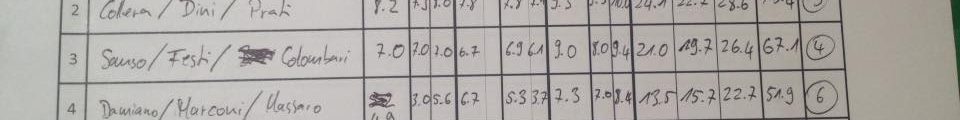 2 Collera / Dini / Prati 8.2
3 Sanso / Festi / Colombari 7.0 7.0 7.0 6.7 6.9 6.1 9.0 8.0 9.4 21.0 19.7 26.4 67.1 4
4 Damiano / Marconi / Massaro 3.0 5.6 6.7 5.3 3.7 7.3 7.0 8.4 13.5 15.7 22.7 51.9 6
4.9